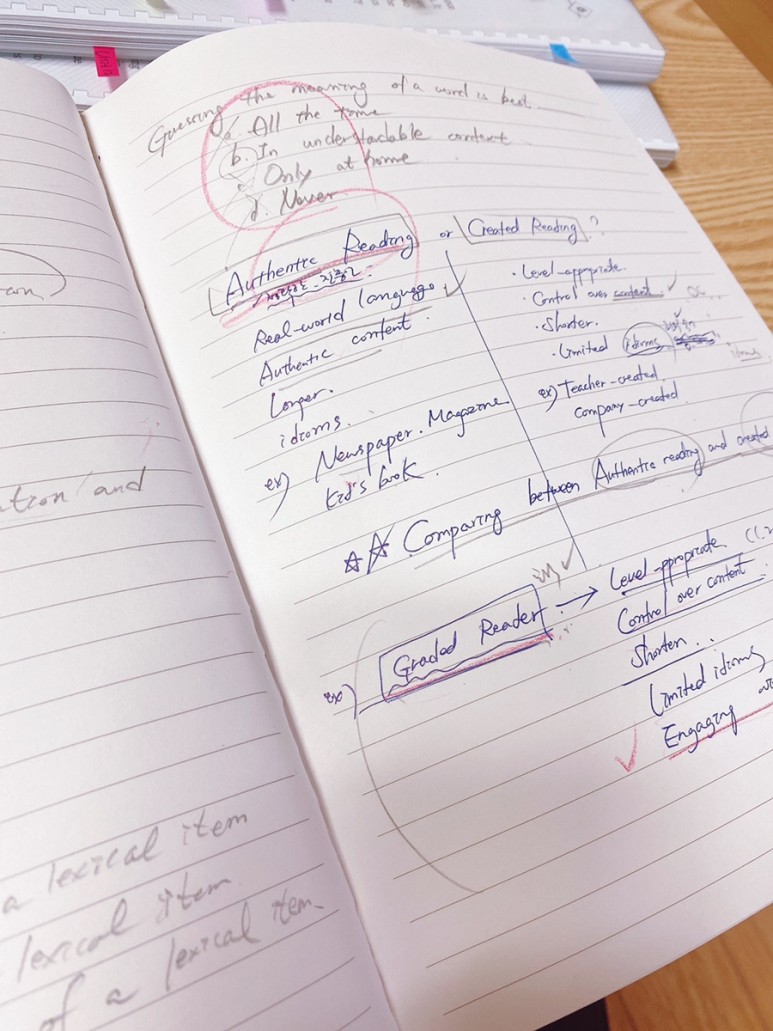 ation and
a lexical item
lexical item
of a lexical item.
Guessing the meaning of a word is best
a. All the time
b. In understadable context
c. Only at home
d. Never
Authentic Reading or Created Reading ?
Real-world language
Authentic content
Longer.
idioms.
ex) Newspaper. Magazine
kid's book.
· Level-appropriate.
· Control over content.
· Shorter.
· Limited idioms
ex) Teacher-created
company-created
☆☆ Comparing between Authentic reading and created
ex) Graded Reader. → Level-appropriate
Control over content.
Shorter..
Limited idioms
Engaging